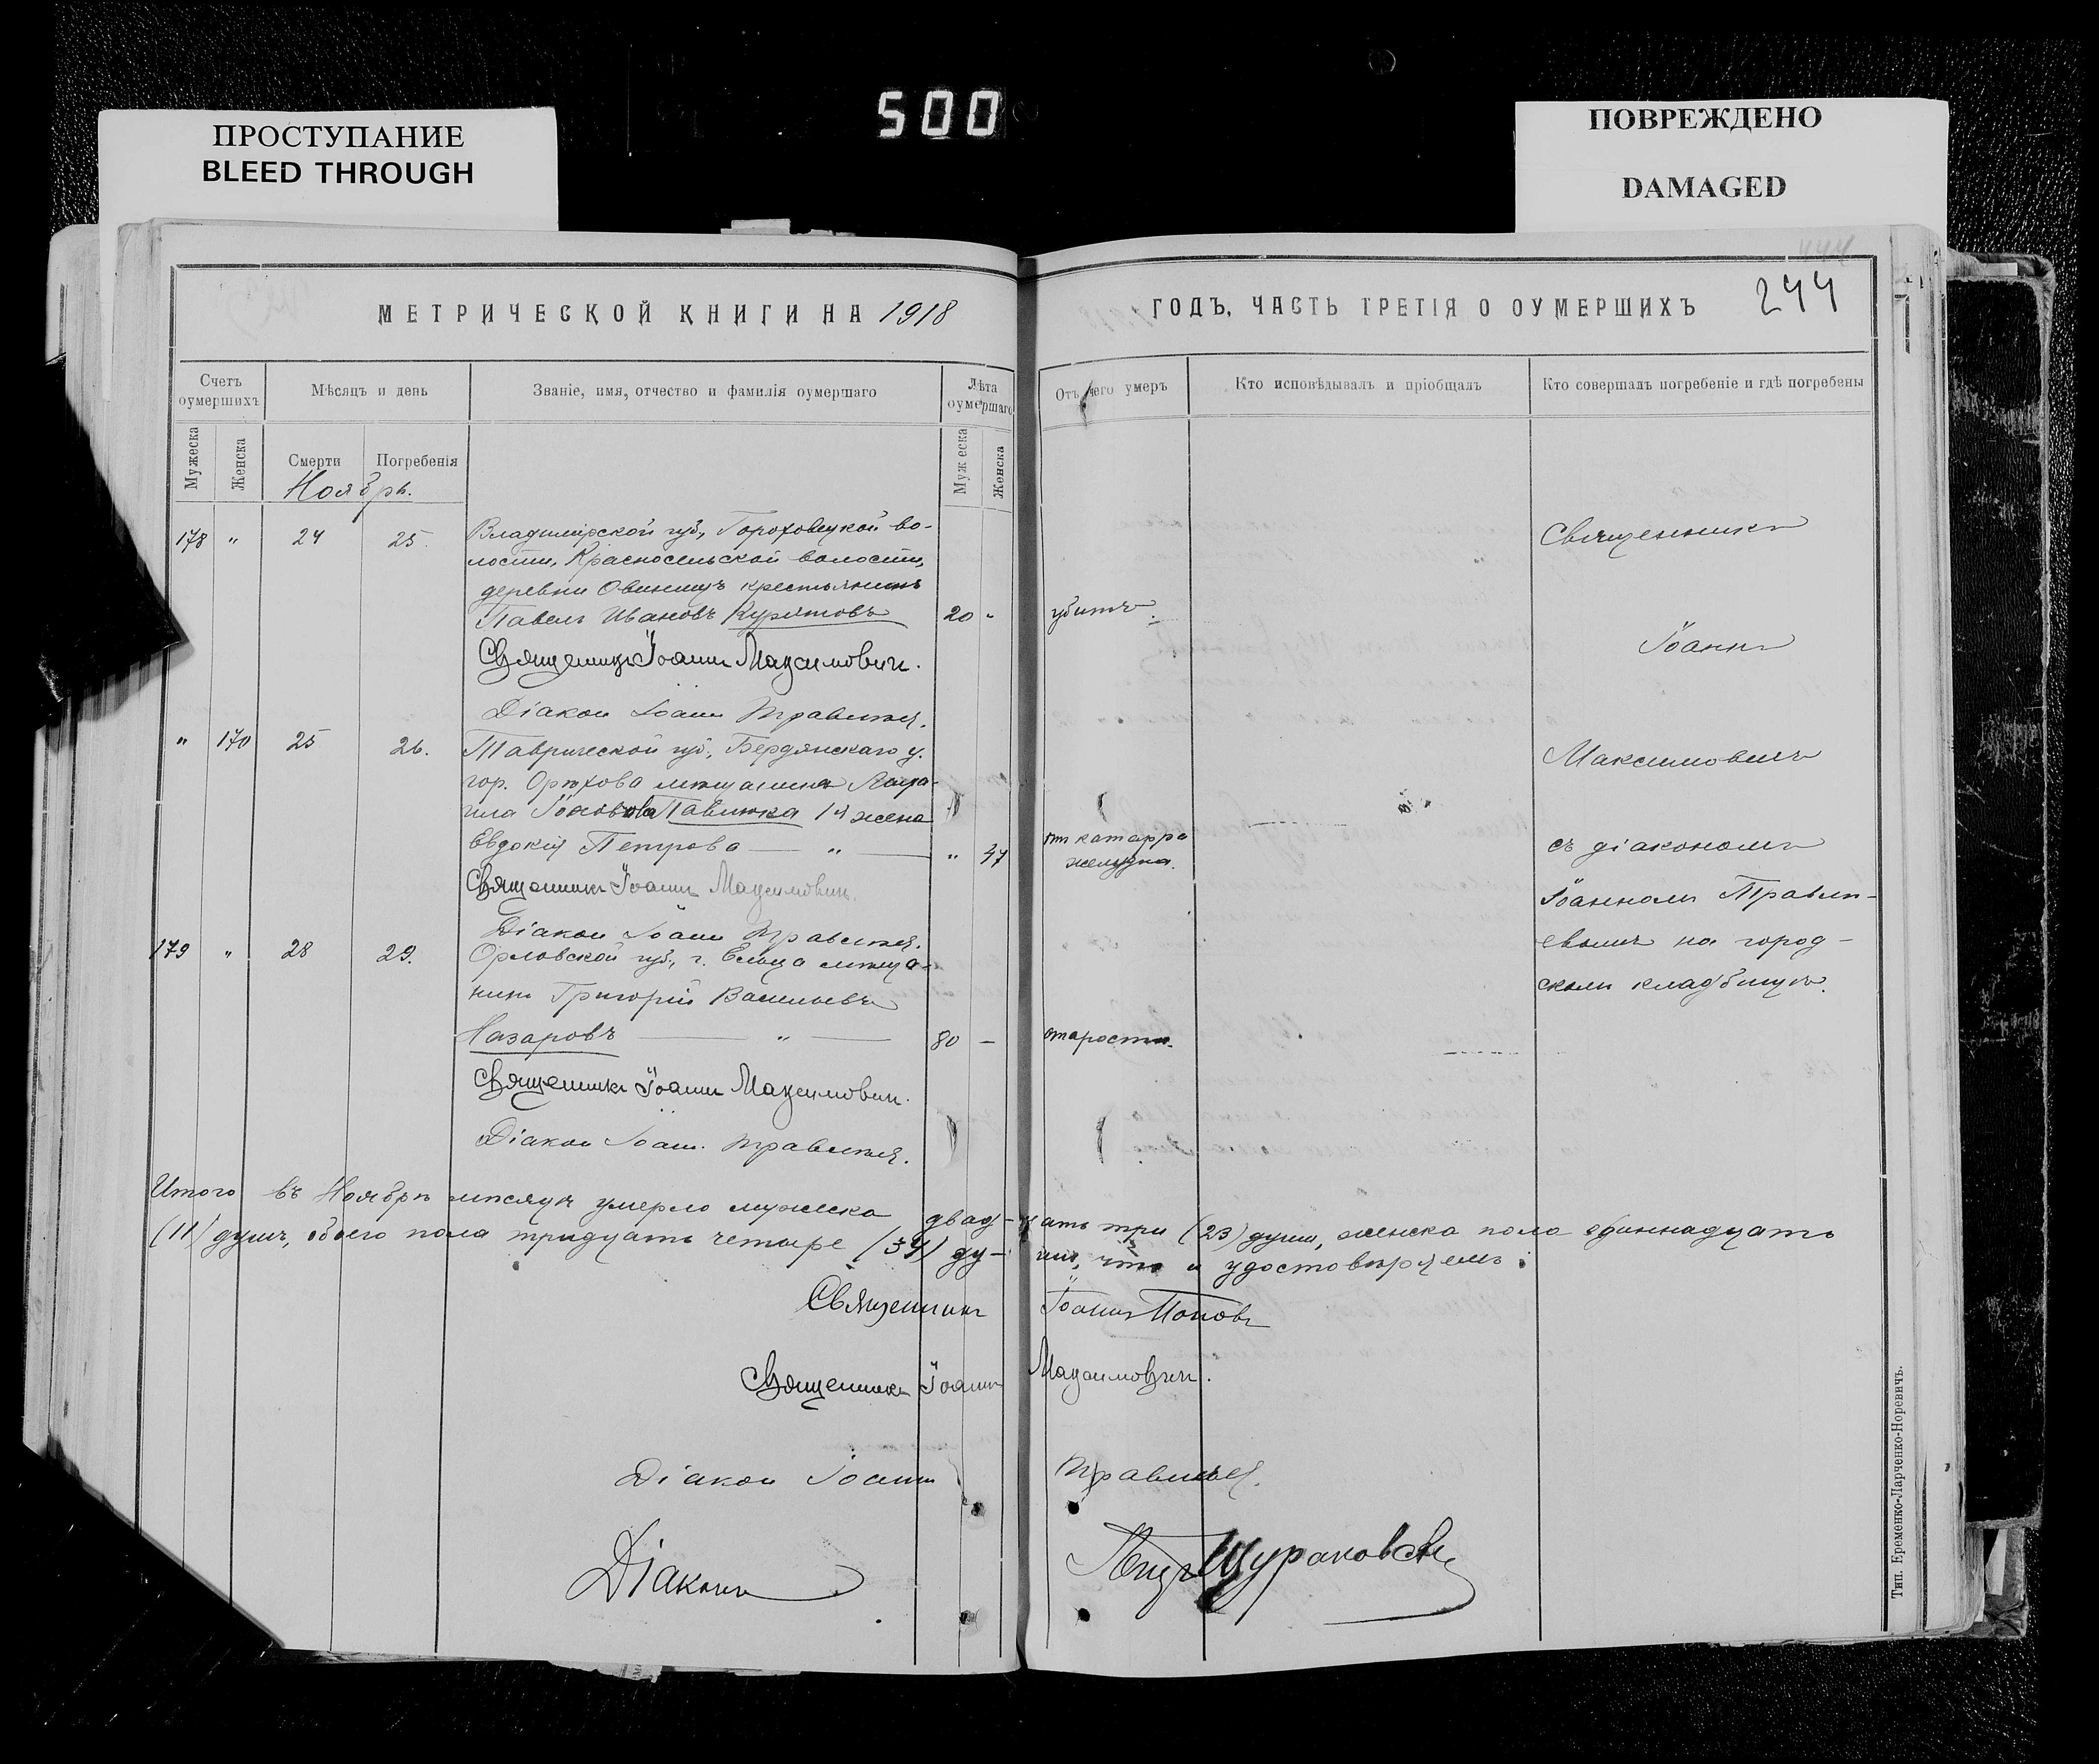 500
ПРОСТУПАНИЕ
BLEED THROUGH
ПОВРЕЖДЕНО
DAMAGED
МЕТРИЧЕСКОЙ КНИГИ НА 1918
ГОДЪ, ЧАСТЬ ТРЕТІЯ О ОУМЕРШИХЪ
244
Счетъ оумершихъ
Мѣсяцъ и день
Званіе, имя, отчество и фамилія оумершаго
Лѣта оумершаго
Отъ чего умеръ
Кто исповѣдывалъ и пріобщалъ
Кто совершалъ погребеніе и гдѣ погребены
Мужеска
Женска
Смерти
Погребенія
Мужеска
Женска
Ноябрь.
178 " 24 25. Владимірской губ., Гороховецкой во-
лости, Красносельской волости,
деревни Овинищъ крестьянинъ
Павелъ Ивановъ Курятовъ 20 " убитъ.
Священникъ Іоаннъ Максимовичъ.
Діаконъ Іоаннъ
" 170 25 26. Таврической губ., Бердянскаго у.
гор. Орѣхова мѣщанина
Павлюка 1я жена
Евдокія Петрова — " — " 47 отъ катарра
желудка.
Священникъ Іоаннъ Максимовичъ.
Діаконъ Іоаннъ
179 " 28 29. Орловской губ., г. Ельца мѣща-
нинъ Григорій Васильевъ
Назаровъ — " — 80 — старости.
Священникъ Іоаннъ Максимовичъ.
Діаконъ Іоаннъ
Священникъ
Іоаннъ
Максимовичъ
съ діакономъ
Іоанномъ
на город-
скомъ кладбищѣ.
Итого въ Ноябрѣ мѣсяцѣ умерло мужеска двад-цать три (23) души, женска пола одиннадцать
(11) душъ, обоего пола тридцать четыре (34) ду-ши, что и удостовѣряемъ:
Священникъ Іоаннъ Поповъ
Священникъ Іоаннъ Максимовичъ.
Діаконъ Іоаннъ
Діаконъ
Тип. Еременко-Ларченко-Норевичъ.